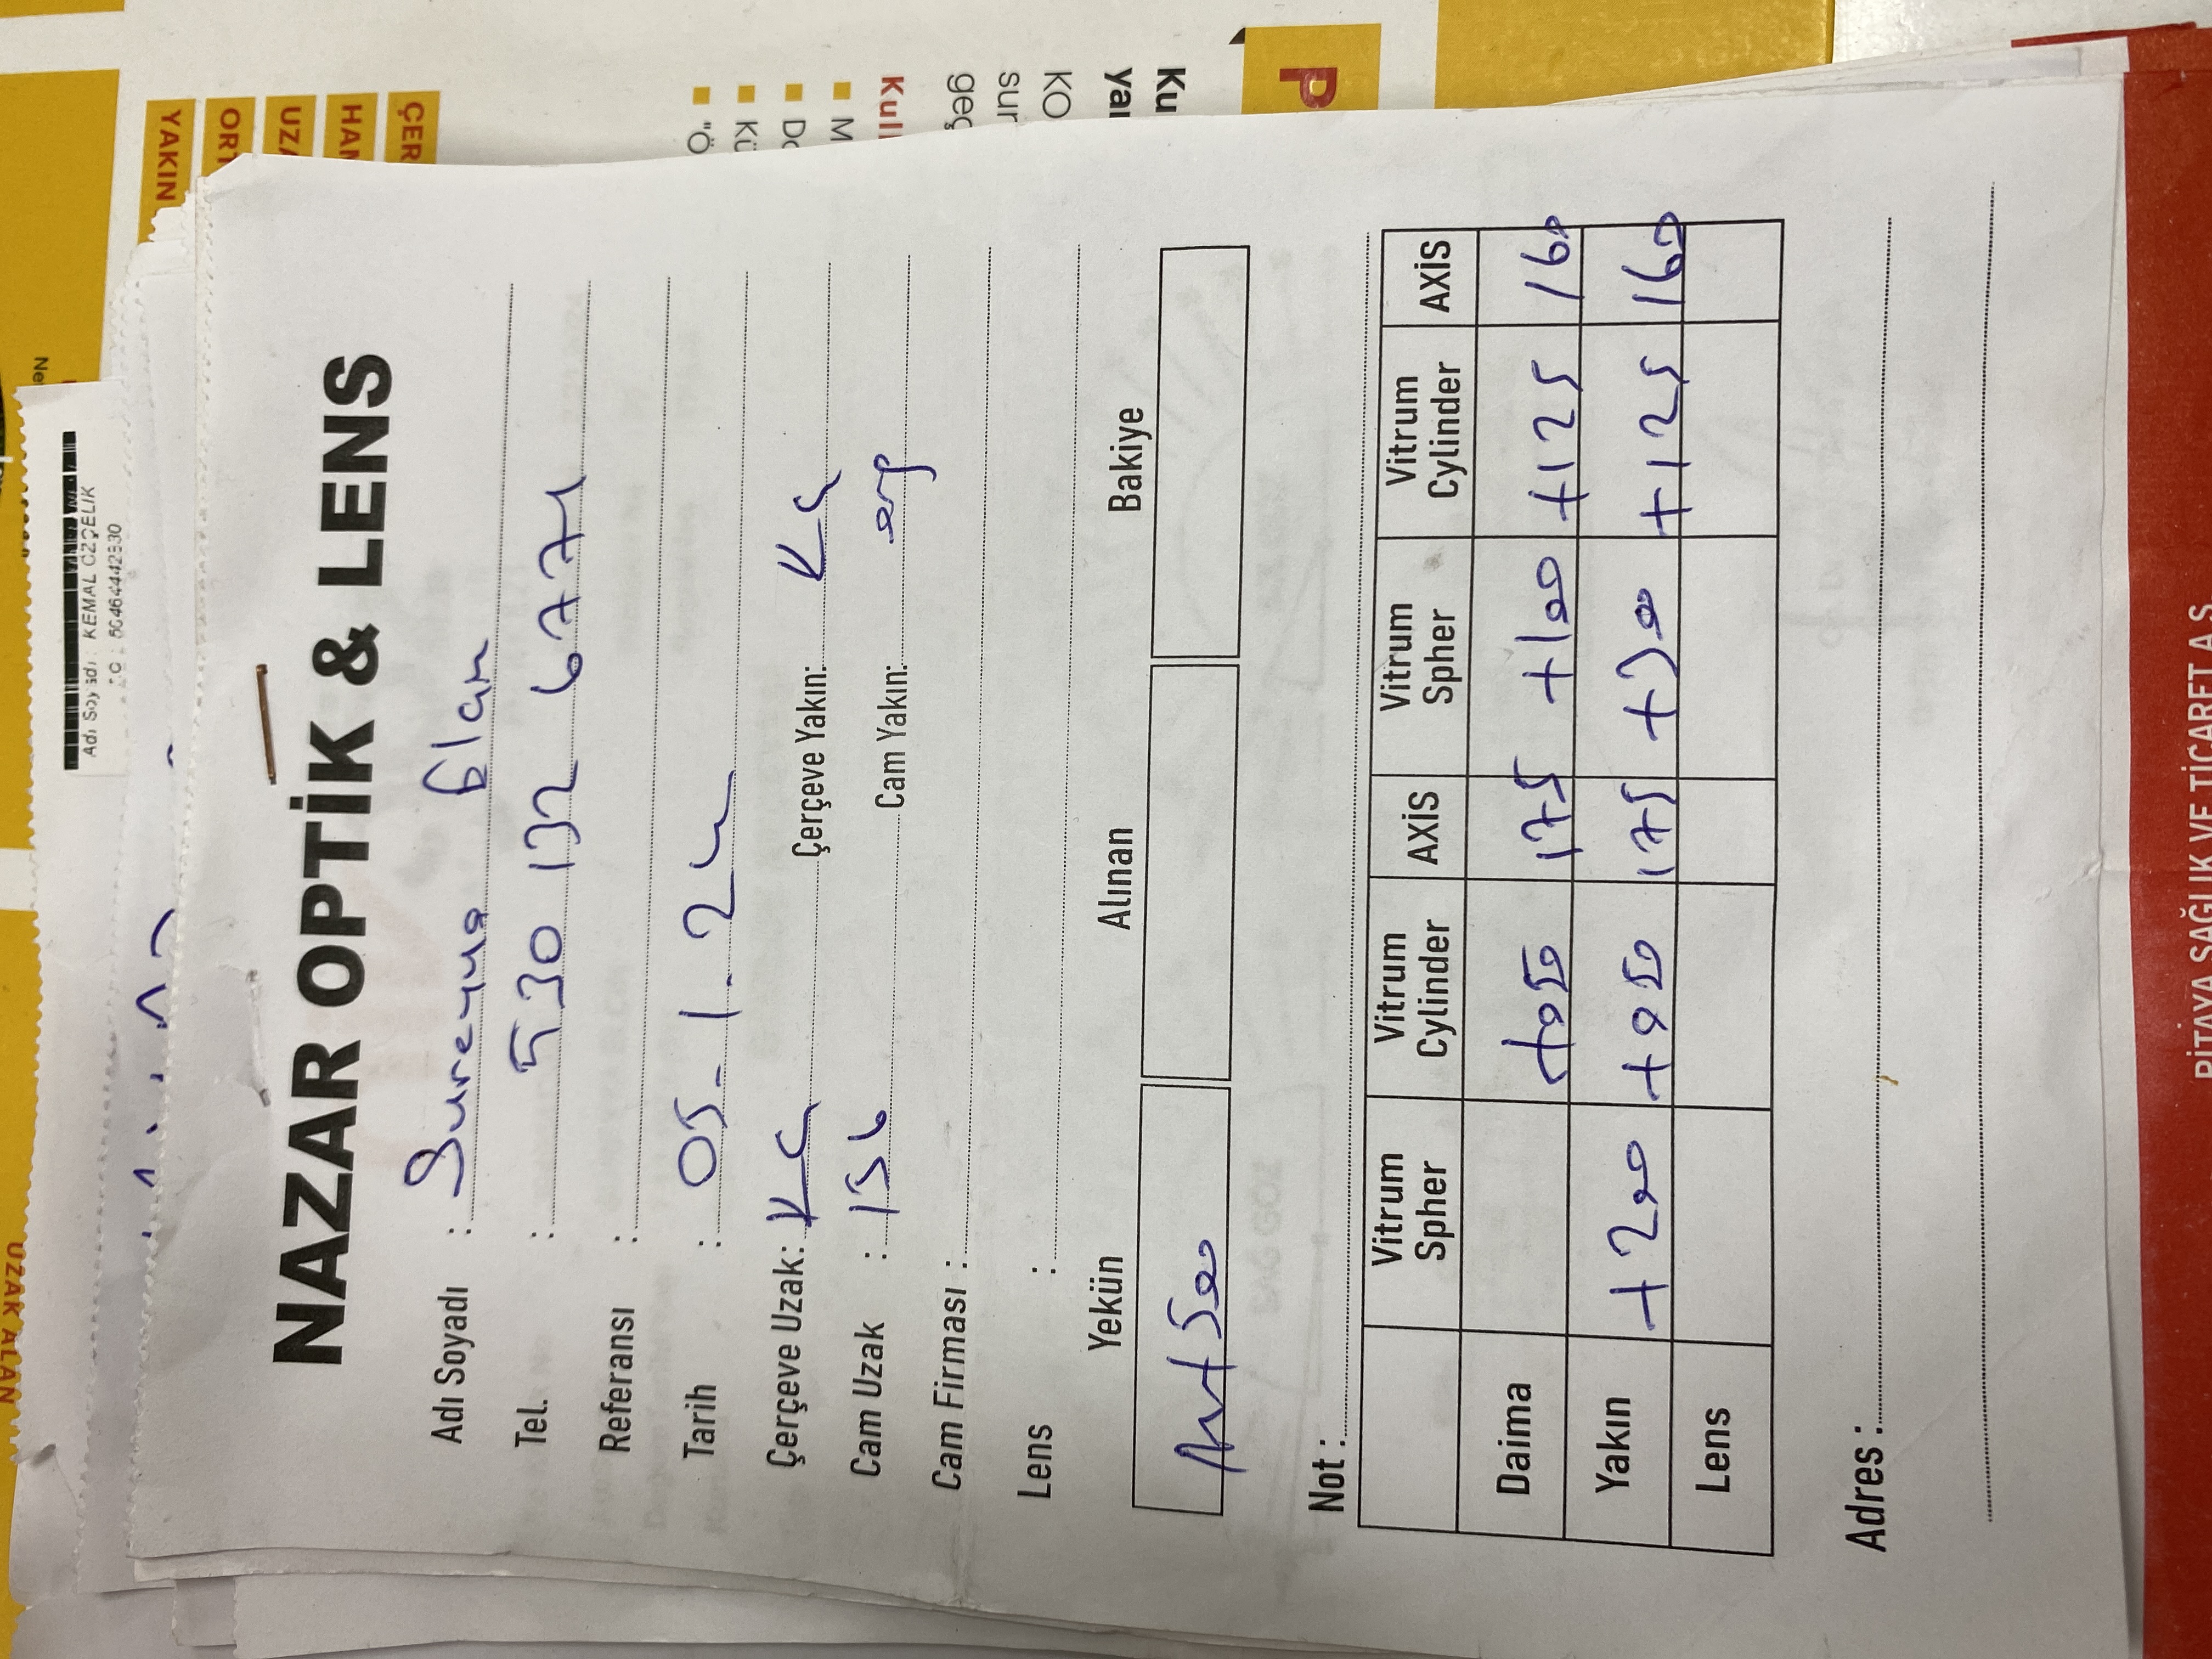 UZAK ALAN
Adı Soyadı : KEMAL ÖZÇELİK
NAZAR OPTİK & LENS
Adı Soyadı : Sureyya
Tel. : 530 132 6771
Referansı :
Tarih : 05-1-24
Çerçeve Uzak: KÇ Çerçeve Yakın: KÇ
Cam Uzak : 156 Cam Yakın:
Cam Firması :
Lens :
Yekün Alınan Bakiye
500
Not :
Vitrum Spher Vitrum Cylinder AXİS Vitrum Spher Vitrum Cylinder AXİS
Daima +050 175 +100 +125 160
Yakın +200 +050 175 +300 +125 160
Lens
Adres :
YAKIN
PİTAYA SAĞLIK VE TİCARET A.Ş.